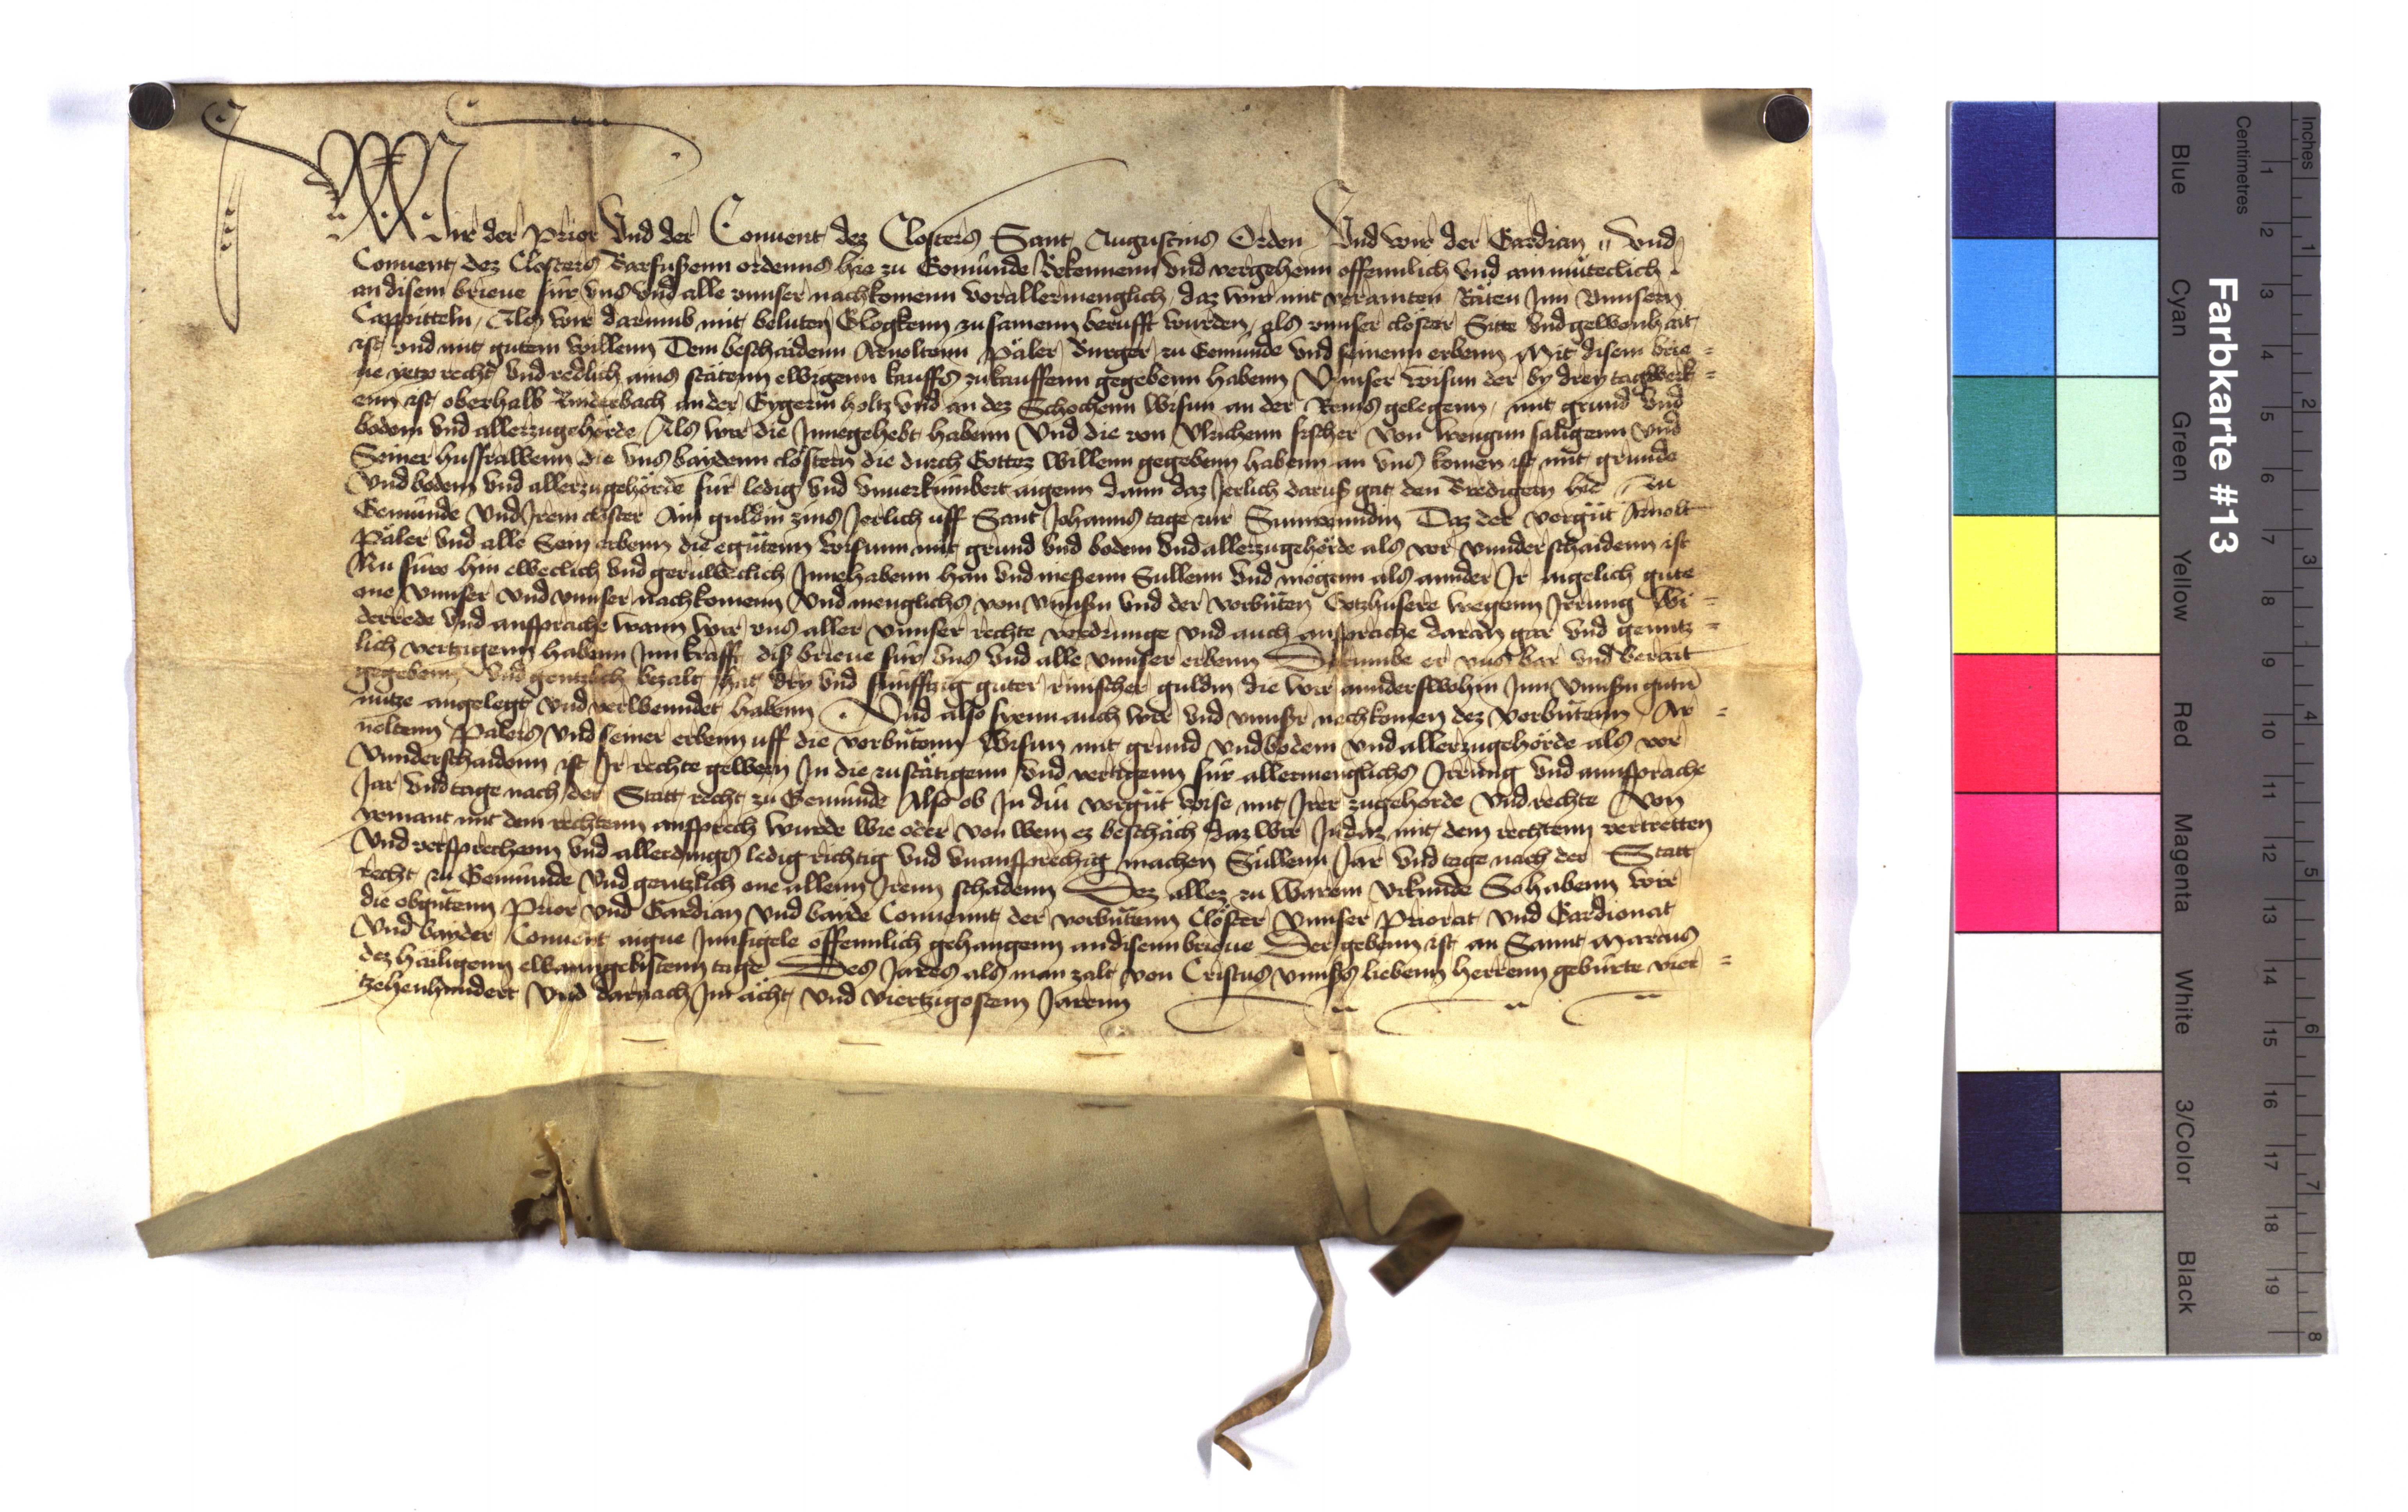 Wir der Prior Vnd der Conuent dez Closters Sant Augustins Orden Vnd wir der Gardian Vnd
Conuent dez Closters Barfußenn ordenns hie zu Gemunde Bekennenn vnd vergehenn offennlich vnd ainmuteclich
an disem brieue für vns vnd alle vnnser nachkomenn vor allermenglich daz wir mit veraintem Räten Jnn Vnnsern
Cappitteln, Als wir darumb mit beluten Glogkenn zusamenn berufft wurden, als vnnser clöster Sitte vnd gewonhait
ist vnd mit gutem willenn Dem beschaidenn Arnoltenn Päler Burger zu Gemunde vnd seinenn erbenn Mit disem brie=
ue yetzo recht vnd redlich ains stätenn ewigenn kauffs zukauffenn gegebenn habenn Vnnser Wisun der by drey tagwerk=
enn ist oberhalb Binderbach an der Eygerin holtz vnd an dez Schochenn Wisun an der Rems gelegenn, mit grund vnd
bodem vnd aller zugehörde Als wir die Jnnegehebt habenn Vnd die von Vlrichenn fischer von saligenn Vnd
Seiner husfrawenn die vns baydenn clöstern die durch Gottez willenn gegebenn habenn an vns komen ist mit grunde
Vnd bodem vnd aller zugehörde für ledig vnd vnuerkümbert aigenn dann daz Jerlich daruß gat den Bredigern hie zu
Gemunde Vnd Jrem closter Ain guldin zins Jerlich vff Sant Johanns tage zur Sunwenndin Daz der vorgnt Arnolt
Päler vnd alle Sein erbenn die egnten wisunn mit grund vnd bodem vnd aller zugehörde als vor vnnderschaidenn ist
Nu füro hin eweclich vnd geruweclich Jnnehabenn han vnd nießenn Sullenn vnd mögenn als annder Jr aigelich gute
one Vnnser vnd vnnser nachkomenn Vnd menglichs von vnnsern vnd der vorbnten Gotzhusere wegenn Jrrung Wi=
derrede vnd ansprache wann wir vns aller vnnser rechte vordrunge vnd auch ansprache daran gar vnd genntz=
lich vertzigenn habenn Jnn krafft diß brieue für vns vnd alle vnnser erbenn Darumbe er vns bar vnd berait
gegebenn, Vnd gentzlich bezalt hat dry vnd funfftzig guter rinischer guldin die wir annderswohin Jnn Vnnsern guten
nutze angelegt vnd verwenndet habenn. Vnd also syenn auch wir vnd vnnser nachkomen dez Vorbntenn Ar=
noltenn Pälers vnd seiner erbenn vff die vorbntenn Wisun mit grund vnd bodem vnd aller zugehörde als vor
Vnnderschaidenn ist Jr rechte gewern Jn die zustätigenn vnd vertigenn für allermenglichs Jrrung vnd annsprache
Jar vnd tage nach der Statt recht zu Gemunde Also ob Jn diu vorgnt wise mit Jrer zugehorde vnd rechte Von
yemant mit dem rechtenn ansprech wurde wie oder von wem ez beschäch daz wir Jn daz mit dem rechtenn vertretten
Vnd versprechenn vnd allerdings ledig richtig vnd vnansprechig machen Sullenn Jar vnd tage nach der Statt
recht zu Gemunde Vnd gentzlich one allenn Jrenn schadenn Dez allez zu Warem vrkunde So habenn wir
die obgntenn Prior vnd Gardian Vnd bayde Conuennt der vorbntenn Clöster Vnnser Priorat vnd Gardionat
Vnd bayder Conuent aigne Jnnsigele offennlich gehangenn an disenn brieue Der gebenn ist an Sannt Marcus
dez hailigenn ewanngelistenn tage Des Jares als man zalt von Cristus vnnsers liebenn herrenn geburte vier=
tzehenhundert Vnd darnach Jm acht vnd viertzigostem Jarenn
Farbkarte #13
Inches 1 2 3 4 5 6 7 8
Centimetres 1 2 3 4 5 6 7 8 9 10 11 12 13 14 15 16 17 18 19
Blue
Cyan
Green
Yellow
Red
Magenta
White
3/Color
Black